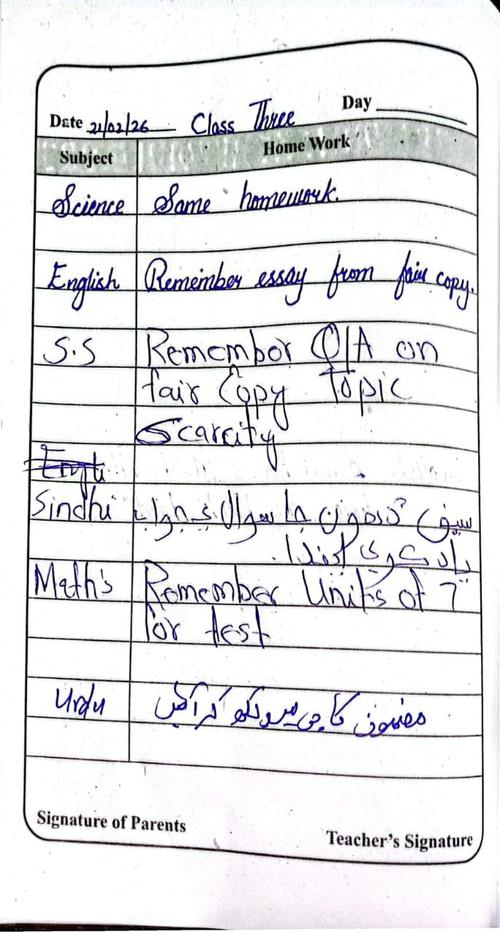 Date 21/02/26 Class Three Day
Subject Home Work
Science Same homework.
English Remember essay from fair copy.
S.S Remember Q/A on
fair Copy Topic
Scarcity
Sindhi سبق جا سوال جواب
ياد ڪري ايندا.
Math's Remember Units of 7
for test
Urdu مضمون کاپی میں لکھ کر آئیں
Signature of Parents
Teacher's Signature